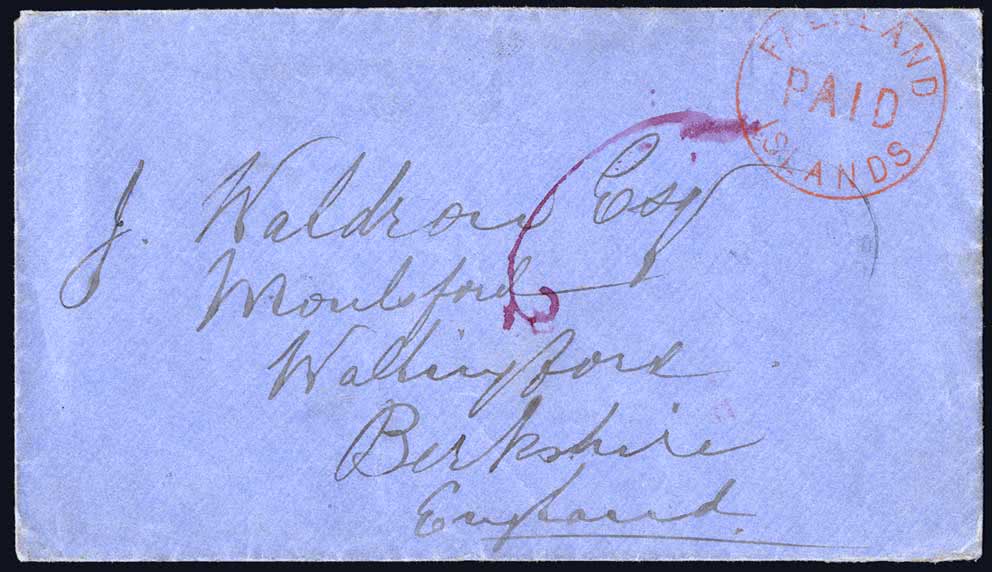 FALKLAND
PAID
ISLANDS
J. Waldron Esq
Moulsford
Wallingford
Berkshire
England.